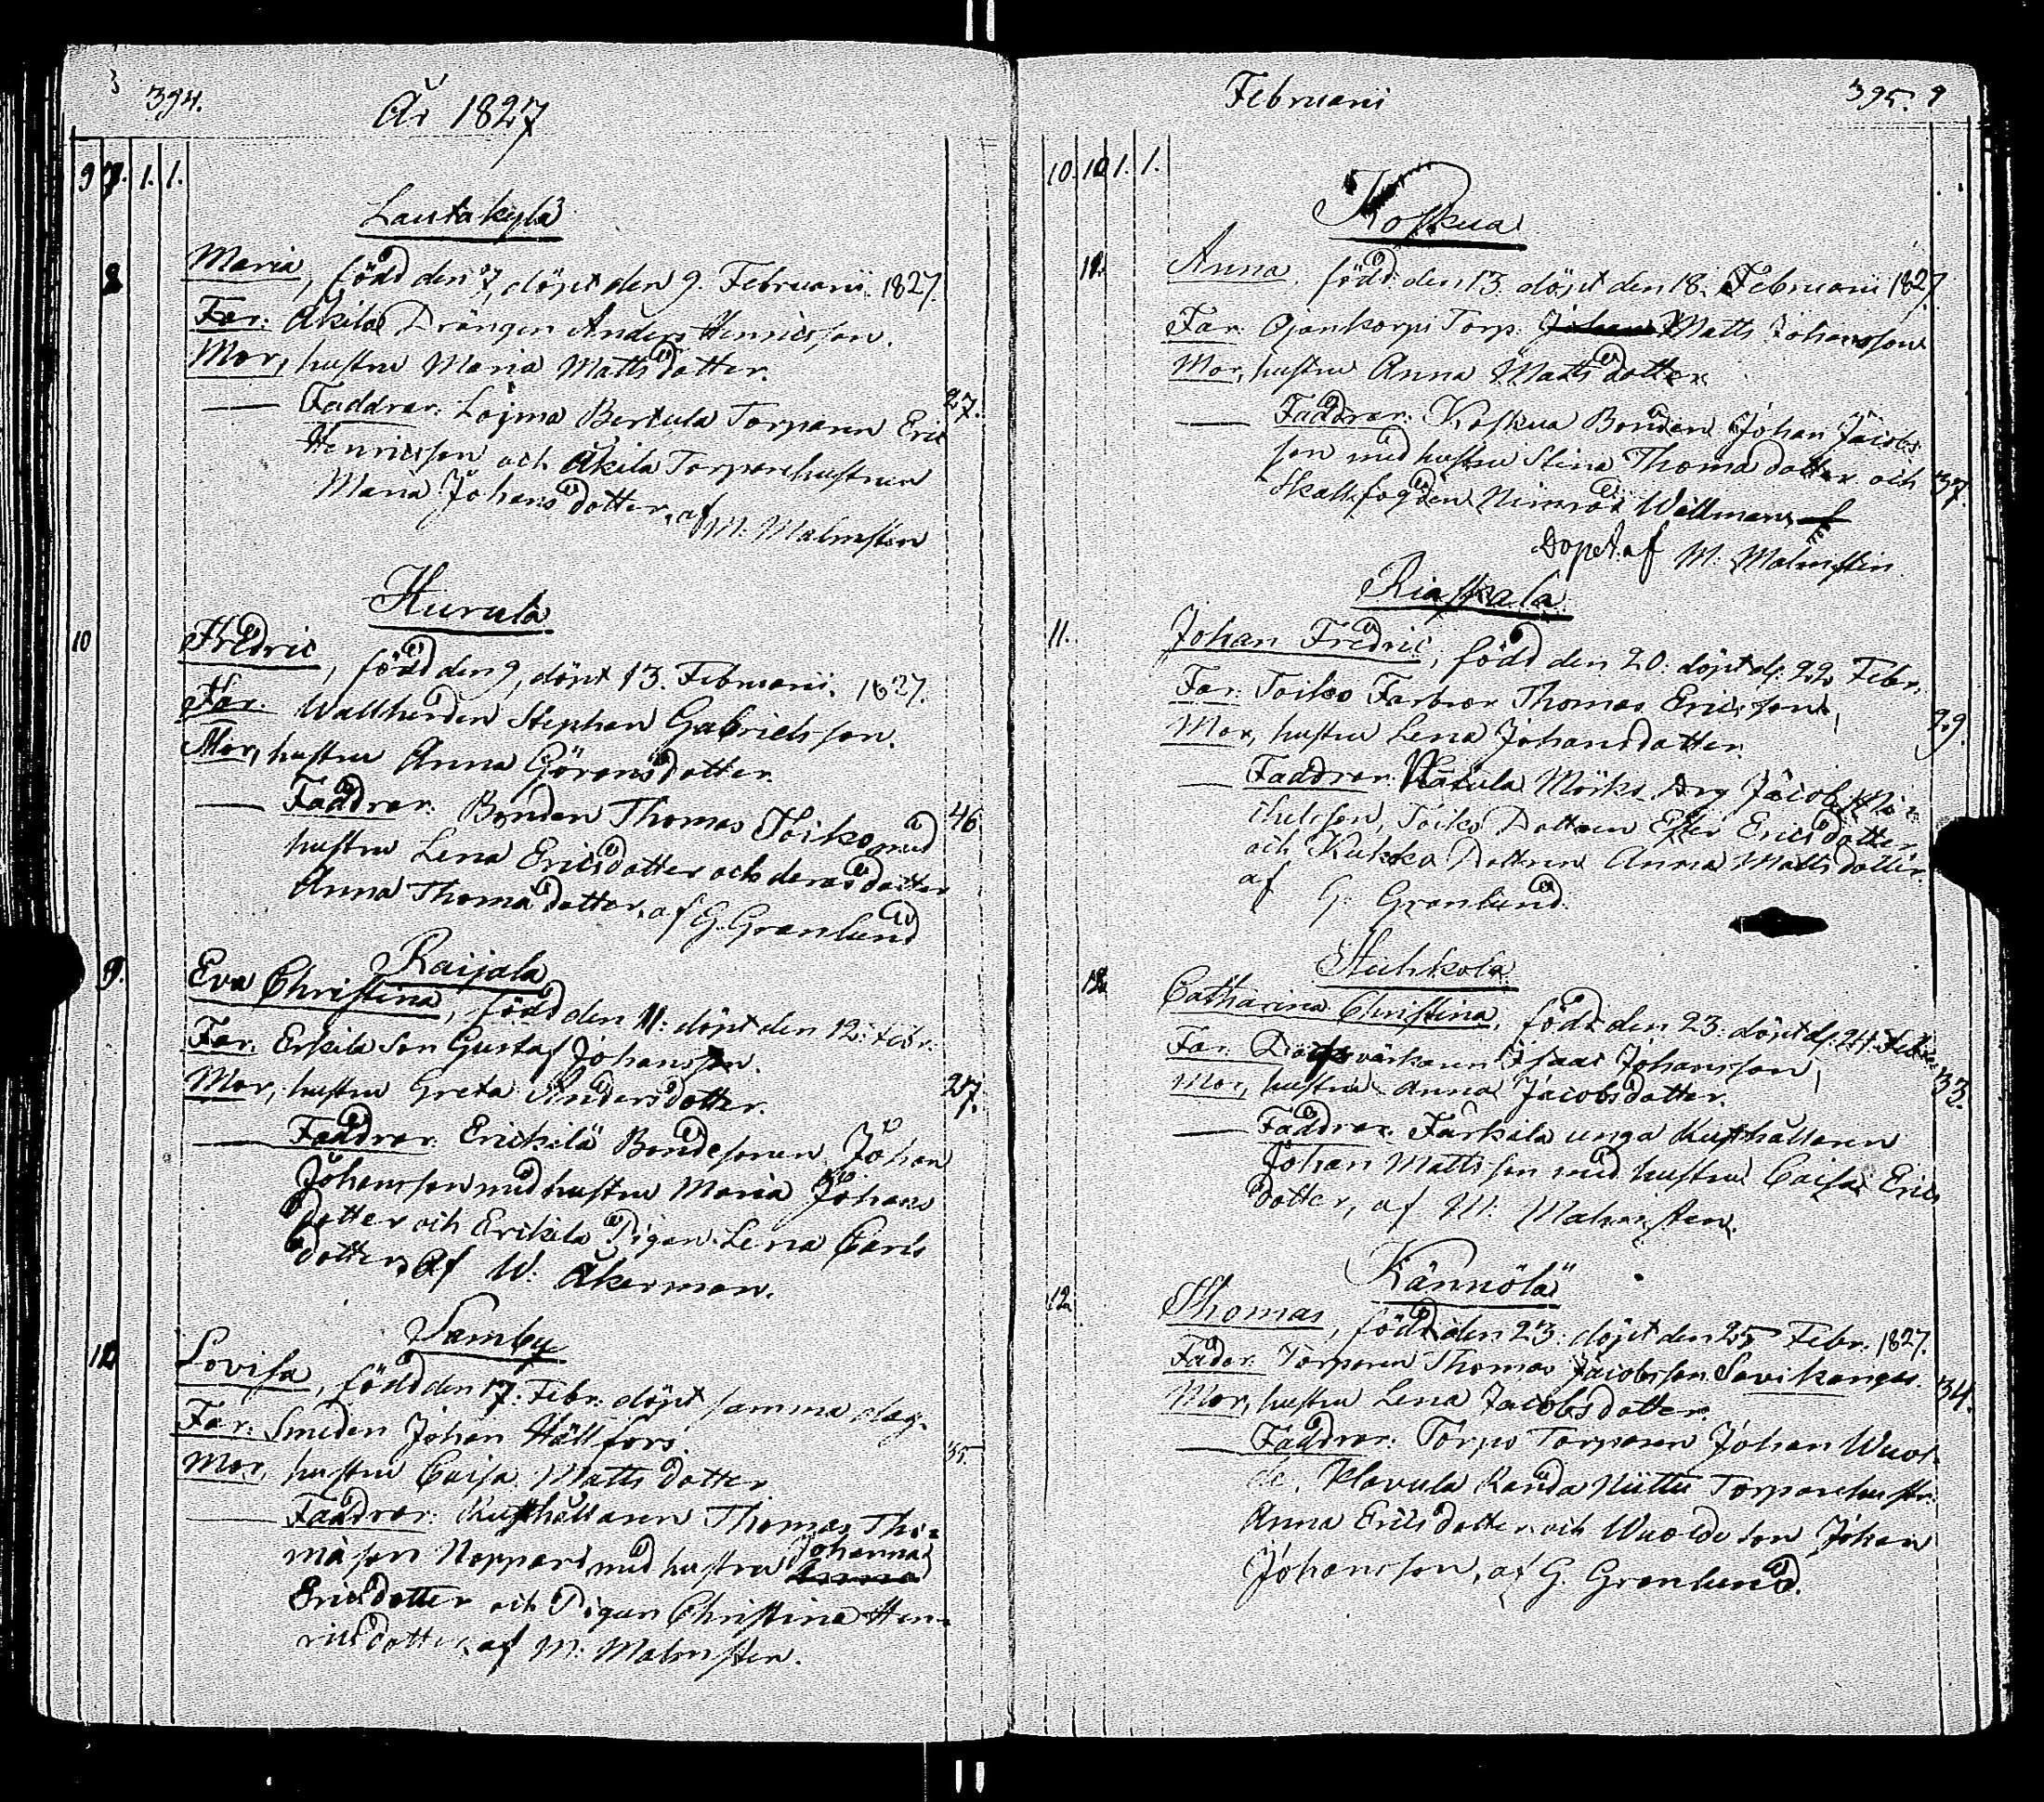 394.
År 1827
9 9. 1. 1.
Lautakylä
8
Maria, född den 7, döpt den 9. Februarii 1827.
Far: Äkilä Drängen Anders Henricsson.
Mor, hustru Maria Mattsdotter.
27.
Faddrar: Loima Bertula Torparen Eric
Henricsson och Äkilä Torparehustrun
Maria Johansdotter, af
M: Malmsten
Hurula
10
Fredric, född den 9, döpt 13. Februarii. 1827.
Far: Wallherden Stephan Gabrielsson.
Mor, hustru Anna Göransdotter.
46
Faddrar: Bonden Thomas Toiko med
hustru Lena Ericsdotter och deras dotter
Anna Thomädotter, af G. Granlund
Raijala
9.
Eva Christina, född den 11: döpt den 12: Febr:
Far: Erkilä Son Gustaf Johansson.
Mor, hustru Greta Andersdotter.
27.
Faddrar: Erickilä Bondesonen Johan
Johansson med hustru Maria Johans
dotter och Erikilä Pigan Lena Carls
dotter, af W: Åkerman.
Samby
10
Lovisa, född den 17: Febr: döpt samma dag.
Far: Smeden Johan Hällfors.
35.
Mor, hustru Caisa Mattsdotter
Faddrar: Rusthållaren Thomas Tho=
mäson Noppari med hustru Johanna
Ericsdotter och Pigan Christina Hen=
ricsdotter, af M: Malmsten.
Februarii
395. 9
10. 10 1. 1.
Koskua
11.
Anna, född den 13: döpt den 18: Februarii 1827.
Far: Ojankorpi Torp: Johan Matts Johansson
Mor, hustru Anna Mattsdotter
Faddrar: Koskua Bonden Johan Jacobs
son med hustru Stina Thomadotter och
37.
Skallfogden Nimrod Willman, af
Döpet af M: Malmsten
Riaskala
11.
Johan Fredric, född den 20: döpt d: 22 Febr:
Far: Toiko Farbror Thomas Ericsson,
29.
Mor, hustru Lena Johansdotter.
Faddrar: Mörks Drg Jacob Mi=
chelsson, Toiko Dottren Ester Ericsdotter
och Kukko Dottren Anna Mattsdotter.
af G. Granlund.
Huhkola
12
Catharina Christina, född den 23: döpt d: 24: Febr:
Far: Isaac Johansson,
33.
Mor, hustru Anna Jacobsdotter.
Faddrar: Färkälä unga Rusthållaren
Johan Mattsson med hustru Caisa Erics
dotter, af M: Malmsten.
Kännölä
12
Thomas, född den 23: döpt den 25 Febr. 1827.
Fader: Torparen Thomas Jacobsson Savikangas
34.
Mor, hustru Lena Jacobsdotter.
Faddrar: Torpo Torparen Johan Wuol-
de, Klavula Randa Niittu Torparehustr:
Anna Ericsdotter och Wuolde son Johan
Johansson, af G. Granlund.